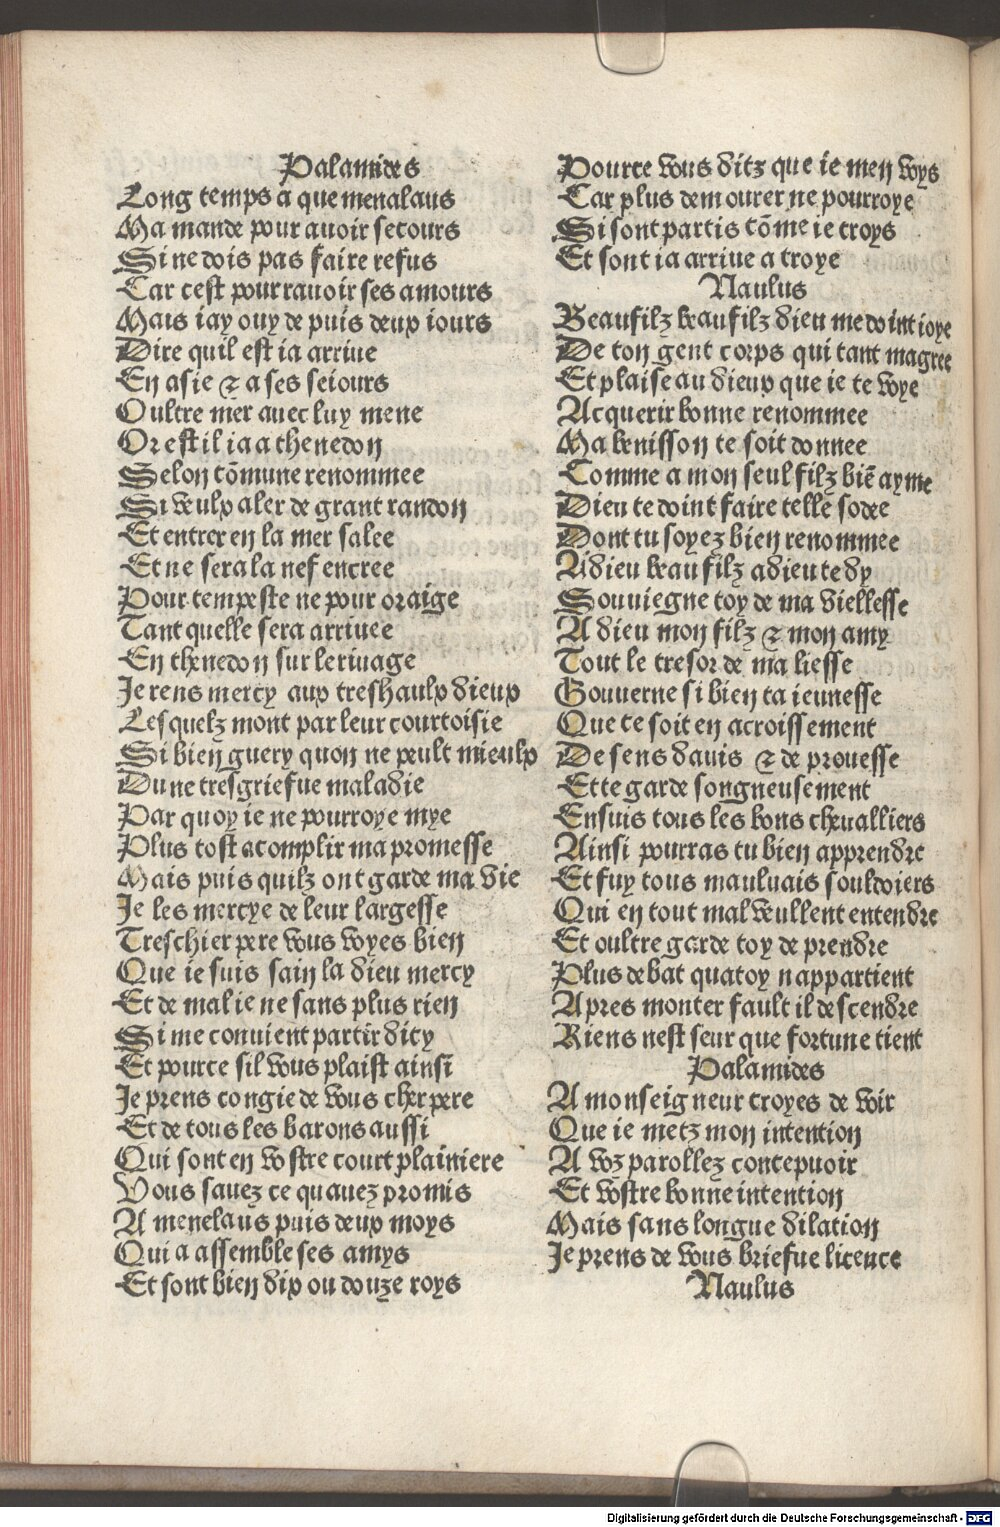 Palamides
Long temps a que menalaus
Ma mande pour auoir secours
Si ne dois pas faire refus
Car cest pour rauoir ses amours
Mais iay ouy de puis deux iours
Dire quil est ia arriue
En asie & a ses seiours
Oultre mer auec luy mene
Or est il ia a thenedon
Selon cõmune renommee
Si veulx aler de grant randon
Et entrer en la mer salee
Et ne sera la nef encree
Pour tempeste ne pour oraige
Tant quelle sera arriuee
En thenedon sur le riuage
Je rens mercy aux treshaulx dieux
Lesquelz mont par leur courtoisie
Si bien guery quon ne peult mieulx
Dune tresgriefue maladie
Par quoy ie ne pourroye mye
Plus tost acomplir ma promesse
Mais puis quilz ont garde ma vie
Je les mercye de leur largesse
Treschier pere vous voyes bien
Que ie suis sain la dieu mercy
Et de mal ie ne sans plus rien
Si me conuient partir dicy
Et pource sil vous plaist ainsi
Je prens congie de vous cher pere
Et de tous les barons aussi
Qui sont en vostre court plainiere
Vous sauez ce quauez promis
A menelaus puis deux moys
Qui a assemble ses amys
Et sont bien dix ou douze roys
Pource vous ditz que ie men voys
Car plus demourer ne pourroye
Si sont partis cõme ie croys
Et sont ia arriue a troye
Naulus
Beaufilz beaufilz dieu me doint ioye
De ton gent corps qui tant magree
Et plaise au dieux que ie te voye
Acquerir bonne renommee
Ma benisson te soit donnee
Comme a mon seul filz biẽ ayme
Dieu te doint faire telle sodee
Dont tu soyez bien renommee
Adieu beau filz adieu te dy
Souuiegne toy de ma viellesse
A dieu mon filz & mon amy
Tout le tresor de ma liesse
Gouuerne si bien ta ieunesse
Que te soit en acroissement
De sens dauis & de prouesse
Et te garde songneusement
Ensuis tous les bons cheualliers
Ainsi pourras tu bien apprendre
Et fuy tous mauluais souldoiers
Qui en tout mal veullent entendre
Et oultre garde toy de prendre
Plus debat qua toy nappartient
Apres monter fault il descendre
Riens nest seur que fortune tient
Palamides
A monseigneur croyes de voir
Que ie metz mon intention
A voz parollez concepuoir
Et vostre bonne intention
Mais sans longue dilation
Je prens de vous briefue licence
Naulus
Digitalisierung gefördert durch die Deutsche Forschungsgemeinschaft - DFG